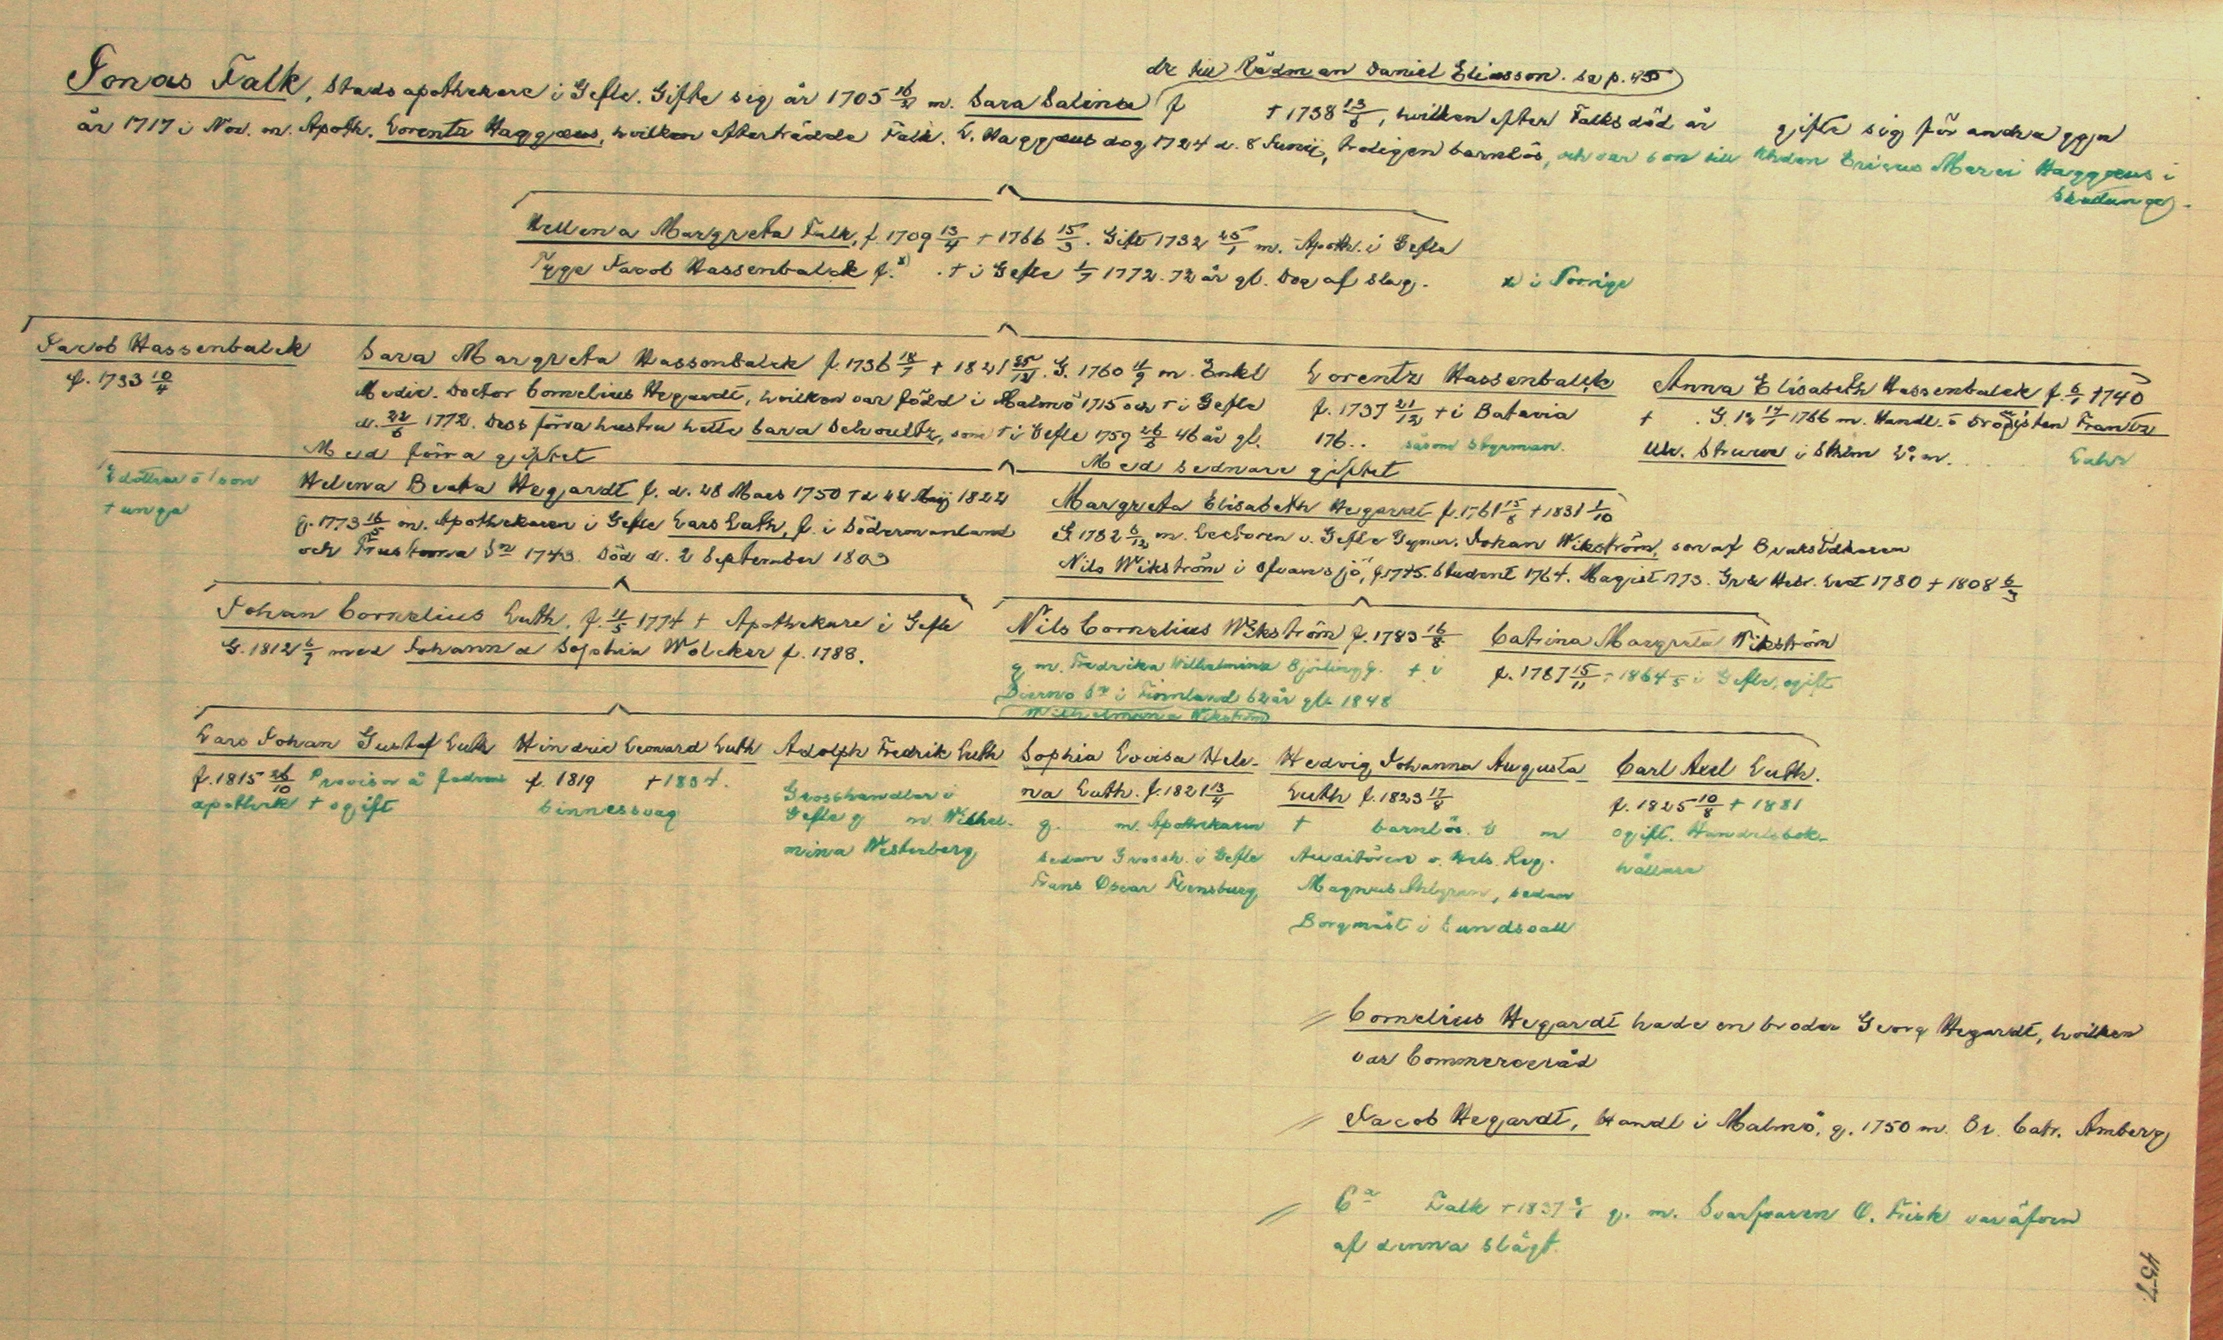 dr till Rådman Daniel Eliasson. se p. 45
Jonas Falk, Stads apothekare i Gefle. Gifte sig år 1705 16/2 m. Sara Salina f † 1738 13/6, hvilken efter Falks död år gifte sig för andra ggn
år 1717 i Nov. m. Apoth. Lorentz Haggæus, hvilken efterträdde Falk. L. Haggæus dog 1724 d. 8 Junij, troligen barnlös, och var son till Khden Ericus Marci Haggæus i
Skutunge.
Hellena Margreta Falk, f. 1709 13/4 † 1766 15/3. Gift 1732 25/1 m. Apoth. i Gefle
Tyge Jacob Hassenbalck f. x) . † i Gefle 1/7 1772. 72 år gl. Dog af slag. x i Norrige
Jacob Hassenbalck
f. 1733 10/4
Sara Margreta Hassenbalck f. 1736 18/7 † 1821 25/12. G. 1760 11/9 m. Enkl
Medic. Doctor Cornelius Hegardt, hvilken var född i Malmö 1715 och † i Gefle
d. 22/6 1772. Dess förra hustru hette Sara Schoultz, som † i Gefle 1759 26/6 46 år gl.
Lorentz Hassenbalck
f. 1737 21/12 † i Batavia
176.. såsom styrman.
Anna Elisabeth Hassenbalck f. 6/1 1740
† . G. 12 17/7 1766 m. Handl. o Drogisten Frantz
Ulr. Struwe i Sthlm 2:o m. . . .
Med förra giftet
Med sednare giftet
2 döttrar o 1 son
† unga
Helena Beata Hegardt f. d. 28 Mars 1750 † d 22 Maj 1822
g. 1773 16/5 m. Apothekaren i Gefle Lars Luth, f. i Södermanland
och Frustuna Sn 1743. Död d. 2 September 1803
Margreta Elisabeth Hegardt f. 1761 15/8 † 1831 1/10
G 1782 6/12 m. Lectoren v. Gefle Gymn. Johan Wikström, son af Bruksidkaren
Nils Wikström i Ofvansjö, f. 1745. Student 1764. Magist 1773. Gr & Hebr. Lect 1780 † 1808 6/3
Johan Cornelius Luth. f. 11/5 1774 † Apothekare i Gefle
G. 1812 6/9 med Johanna Sophia Wölcker f. 1788.
Nils Cornelius Wikström f. 1783 16/8
g m. Fredrika Wilhelmina Björling g. † i
Bjerno Sn i Finnland 62 år gl. 1848
Wilhelmina Wikström
Catrina Margreta Wikström
f. 1787 15/11 † 1864 /5 i Gefle, ogift
Lars Johan Gustaf Luth
f. 1815 26/10 Provisor å fadrens
apothek † ogift
Hindric Leonard Luth
f. 1819 † 1834.
sinnessvag
Adolph Fredrik Luth
Grosshandlar i
Gefle g m. Wilhel-
mina Westerberg
Sophia Lovisa Hele-
na Luth. f. 1821 13/4
g. m. Apothekaren
sedan Grossh. i Gefle
Frans Oscar Flensburg
Hedvig Johanna Augusta
Luth f. 1823 17/8
† barnlös. G m
Auditören v. Hels. Reg.
Magnus Ahlgren, sedan
Borgmäst i Sundsvall
Carl Axel Luth.
f. 1825 10/8 † 1881
ogift. Handelsbok-
hållare
// Cornelius Hegardt hade en broder Georg Hegardt, hvilken
var Commerceråd
// Jacob Hegardt, Handl i Malmö, g. 1750 m. Br. Catr. Amberg
// Ca Falk † 1837 g. m. Svarfvaren O. Frisk var äfven
af denna slägt.
457